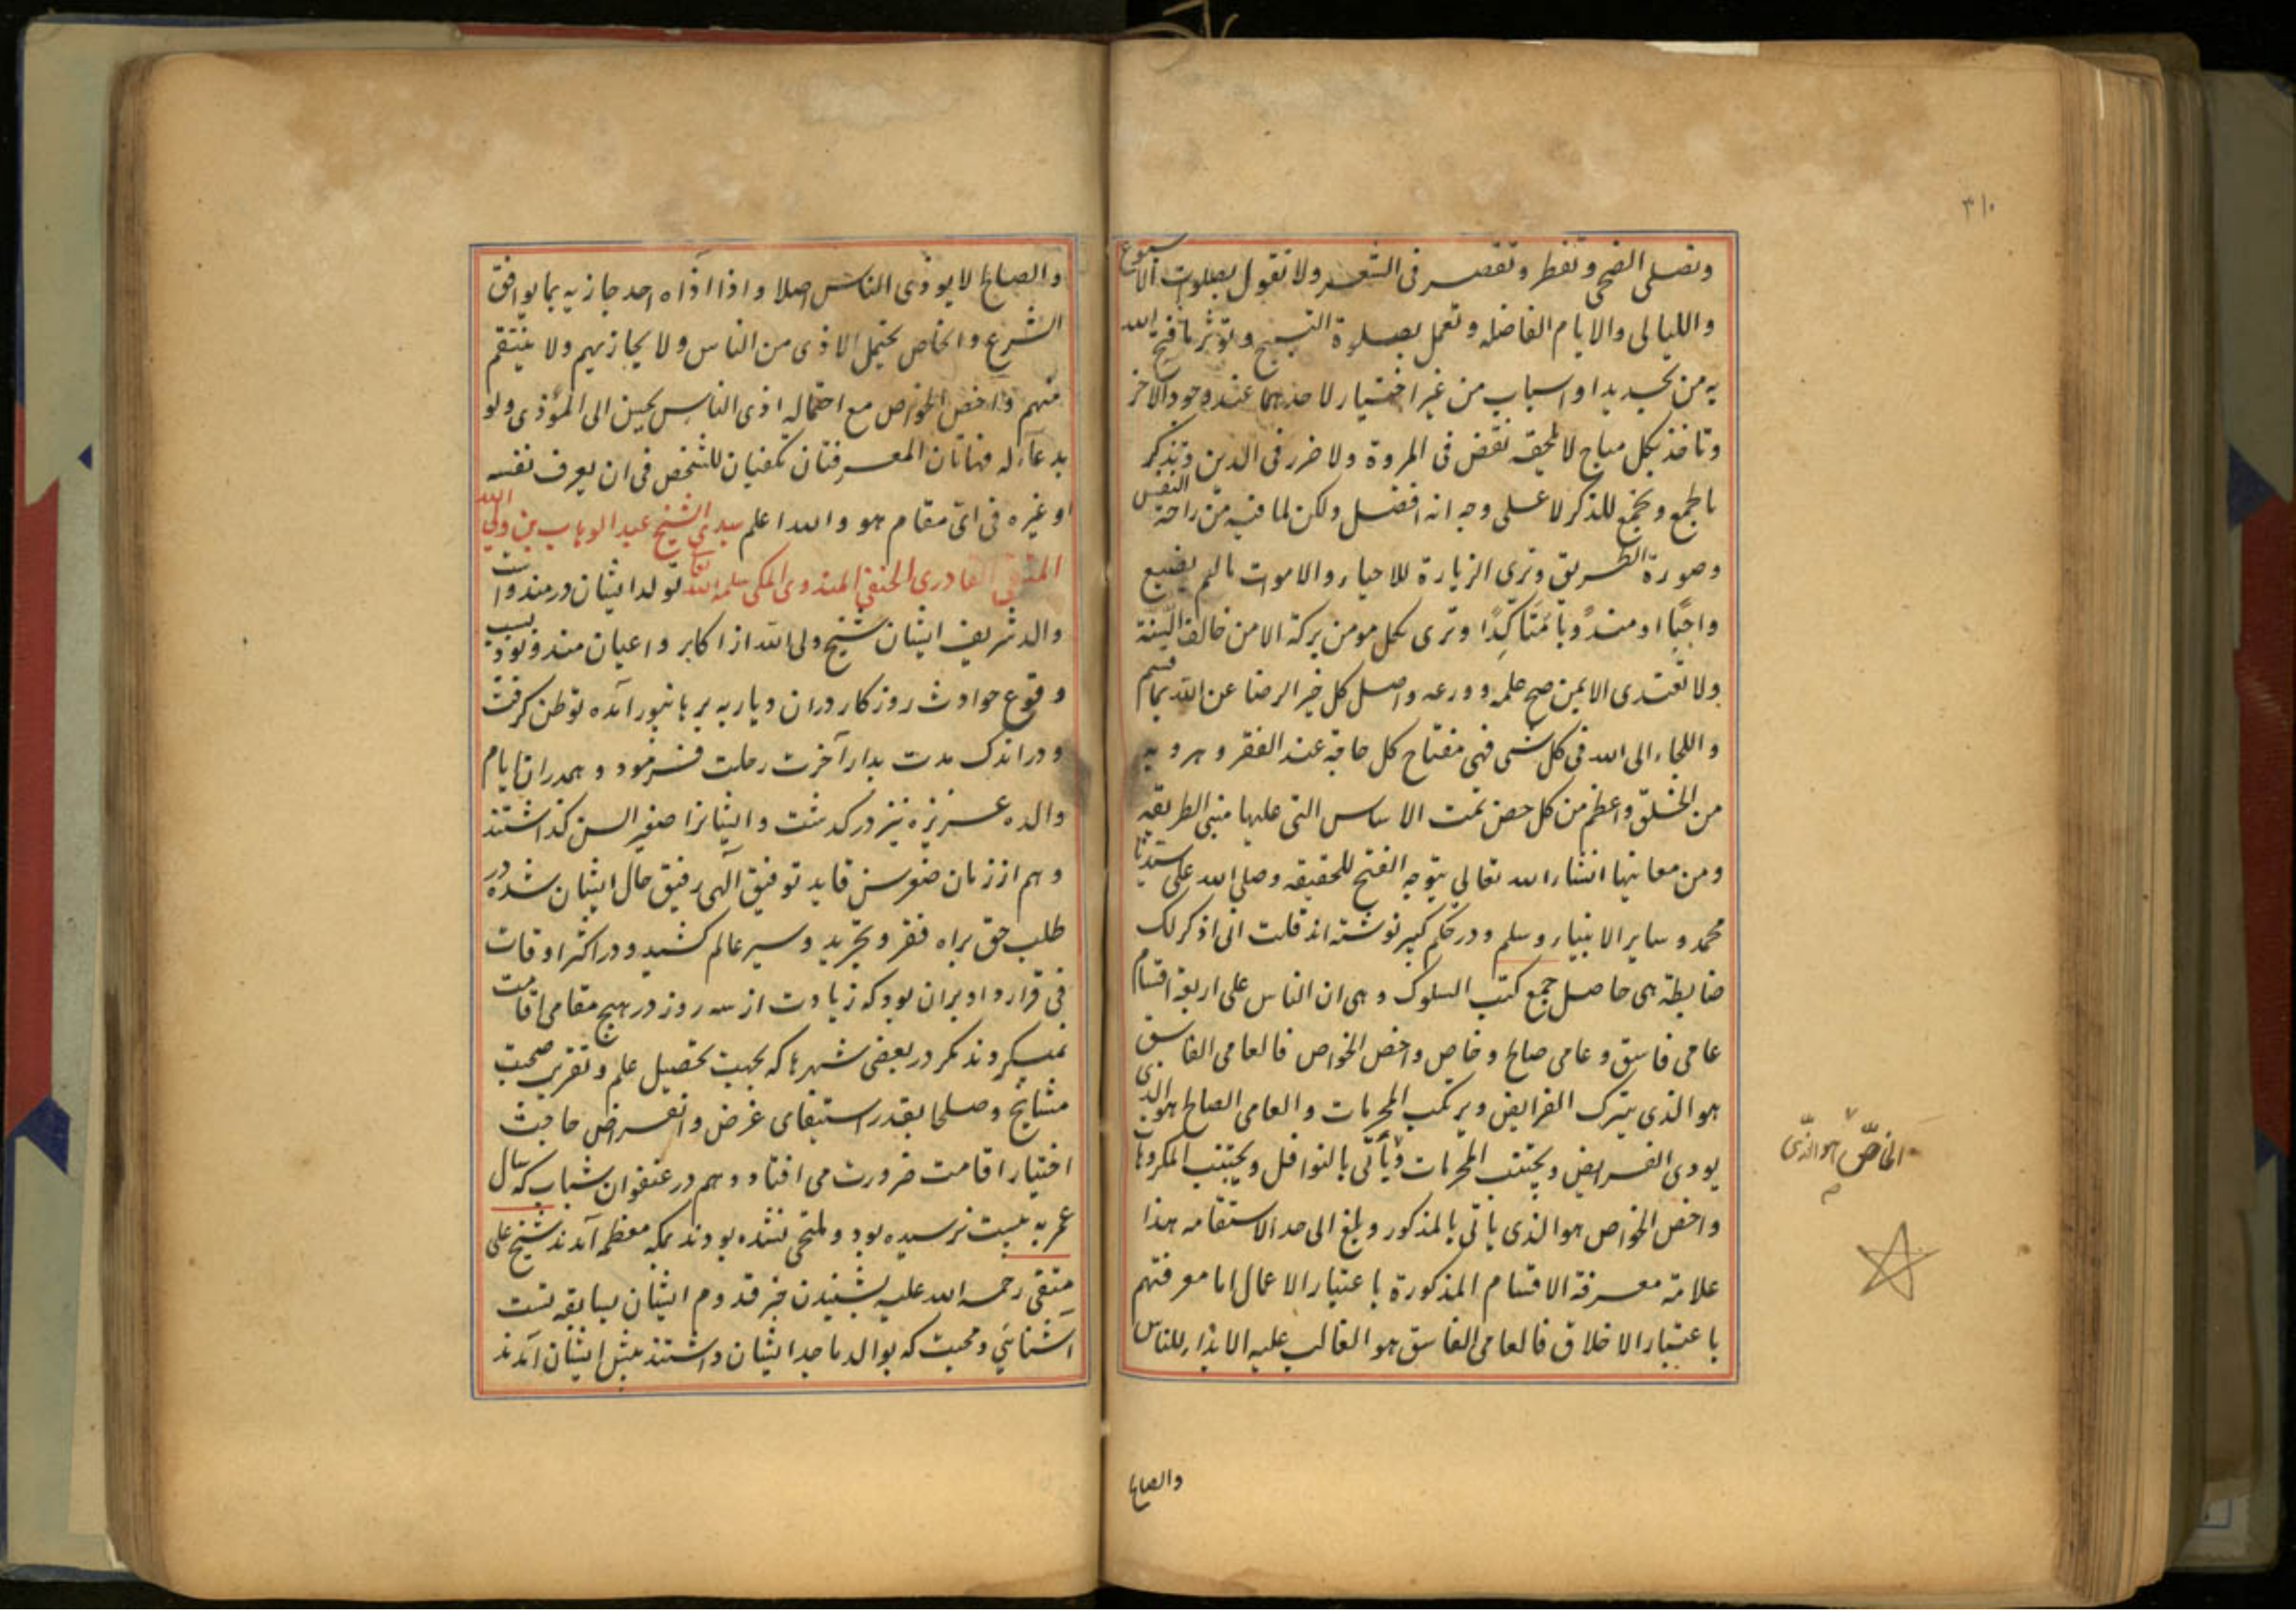 ۳۱۰
وتصلی الضحی وتفطر وتقصر فی السفر ولا تقول بصلوات الاسبوع
واللیالی والایام الفاضله وتعمل بصلوة التسبیح وتوثر ما فتح الله
به من تجرید او اسباب من غیر اختیار لاحدهما عند وجود الاخر
وتاخذ بکل مباح لا یلحقه نقص فی المروة ولا ضرر فی الدین وتذکر
بالجمع وتجمع للذکر لا علی وجه انه افضل ولکن لما فیه من راحة النفس
وصورة الطریق وتری الزیارة للاحیاء والاموات ما لم یضیع
واجبًا او مندوبا متاکدًا وتری لکل مومن برکة الا من خالف السنة
ولا تقتدی الا بمن صح علمه وورعه واصل کل خیر الرضا عن الله بما قسم
واللجاء الی الله فی کل شی فهی مفتاح کل حاجة عند الفقر وهروبه
من الخلق واعظم من کل حصن تمت الاساس التی علیها مبنی الطریقه
ومن معانیها انشاء الله تعالی یتوجه الفتح للحقیقه وصلی الله علی سیدنا
محمد وسایر الانبیاء وسلم ودر حکم کبیر نوشته اند قلت انی اذکر لک
ضابطة هی حاصل جمع کتب السلوک وهی ان الناس علی اربعة اقسام
عامی فاسق وعامی صالح وخاص واخص الخواص فالعامی الفاسق
هو الذی یترک الفرایض ویرتکب المحرمات والعامی الصالح هو الذی
یودی الفرایض ویجتنب المحرمات ویأتی بالنوافل ویجتنب المکروهات
الخاصّ هو الذّی
واخص الخواص هو الذی یاتی بالمذکور وبلغ الی حد الاستقامه هذا
علامة معرفة الاقسام المذکورة باعتبار الاعمال اما معرفتهم
باعتبار الاخلاق فالعامی الفاسق هو الغالب علیه الایذاء للناس
والصالح
والصالح لا یوذی الناس اصلا واذا آذاه احد جازیه بما یوافق
الشرع والخاص یحتمل الاذی من الناس ولا یجازیهم ولا ینتقم
منهم واخص الخواص مع احتماله اذی الناس یحسن الی المؤذی ولو
بدعاء له فهاتان المعرفتان تکفیان للشخص فی ان یعرف نفسه
او غیره فی ای مقام هو والله اعلم سیدی الشیخ عبد الوهاب بن ولی الله
المتقی القادری الحنفی المندوی المکی سلمه الله تعا تولد ایشان در مندو است
والد شریف ایشان شیخ ولی الله از اکابر واعیان مندو بود بسبب
وقوع حوادث روزکار دران دیار به برهانپور آمده توطن کرفت
ودر اندک مدت بدار آخرت رحلت فرمود وهمدران ایام
والده عزیزه نیز در کذشت وایشانرا صغیر السن کذاشتند
وهم از زمان صغر سن قاید توفیق آلهی رفیق حال ایشان شده در
طلب حق براه فقر وتجرید وسیر عالم کشید ودر اکثر اوقات
فی قرار داد بران بود که زیادت از سه روز در هیچ مقامی اقامت
نمیکردند مکر در بعضی شهرها که بجهت تحصیل علم وتقریب صحبت
مشایخ وصلحا بقدر استیفای غرض وانصرام حاجت
اختیار اقامت ضرورت می افتاد وهم در عنفوان شباب که سال
عمر به بیست نرسیده بود وملتحی نشده بودند بمکه معظمه آمدند شیخ علی
متقی رحمه الله علیه بشنیدن خبر قدوم ایشان بسابقه نسبت
آشنائی ومحبت که بوالد ماجد ایشان داشتند پیش ایشان آمدند